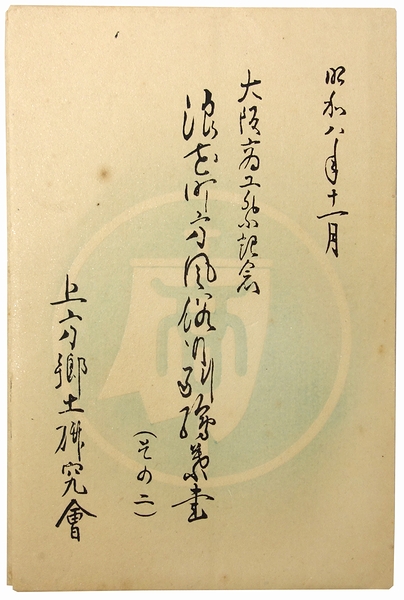 昭和八年十一月
大阪商工祭記念
浪花町方風俗繪葉書
(その二)
上方郷土研究會